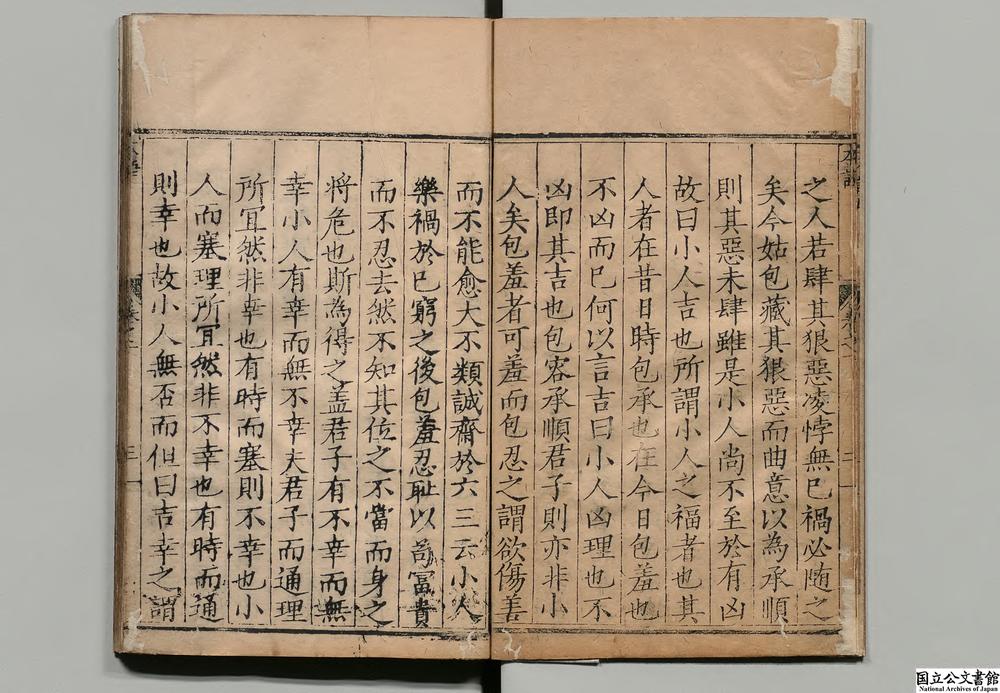 之人若肆其狠惡凌悖無已禍必随之
矣今姑包藏其狠惡而曲意以為承順
則其惡未肆雖是小人尚不至於有凶
故曰小人吉也所謂小人之福者也其
人者在昔日時包承也在今日包羞也
不凶而已何以言吉曰小人凶理也不
凶即其吉也包容承順君子則亦非小
人矣包羞者可羞而包忍之謂欲傷善
而不能愈大不類誠齋於六三云小人
樂禍於已窮之後包羞忍耻以苟冨貴
而不忍去然不知其位之不當而身之
将危也斯為得之盖君子有不幸而無
幸小人有幸而無不幸夫君子而通理
所冝然非幸也有時而塞則不幸也小
人而塞理所冝然非不幸也有時而通
則幸也故小人無否而但曰吉幸之謂
国立公文書館
National Archives of Japan